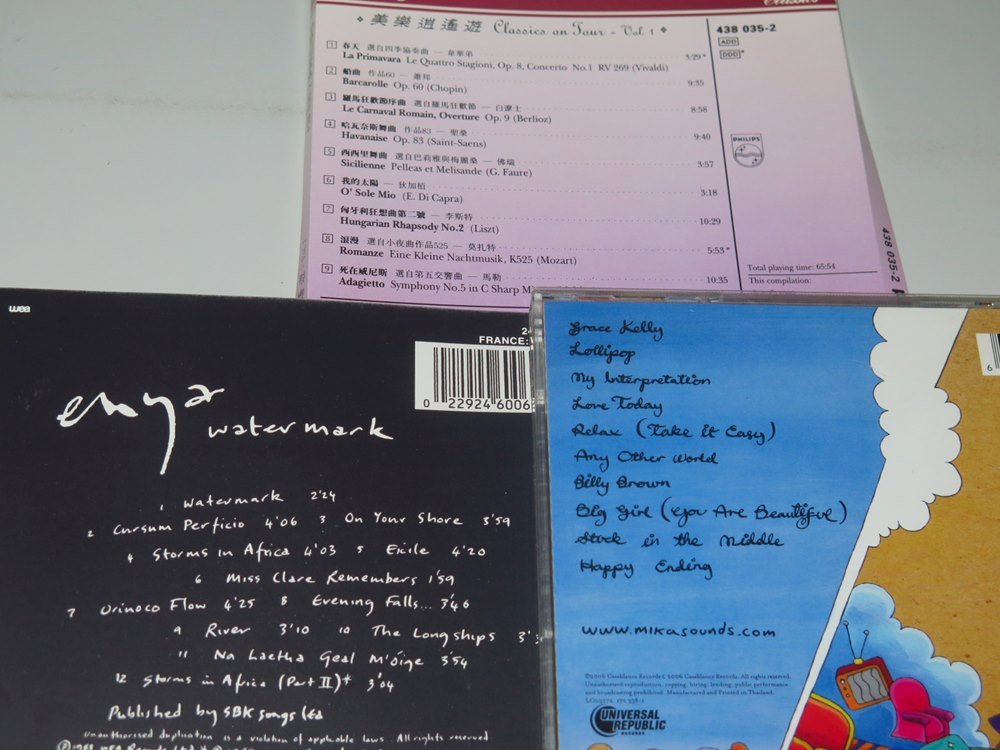 Classics
美樂逍遙遊 Classics on Tour - Vol 1
438 035-2
ADD
DDD*
PHILIPS
1 春天 選自四季協奏曲 — 韋華弟
La Primavara Le Quattro Stagioni, Op. 8, Concerto No.1 RV 269 (Vivaldi) 3:29*
2 船曲 作品60 — 蕭邦
Barcarolle Op. 60 (Chopin) 9:35
3 羅馬狂歡節序曲 選自羅馬狂歡節 — 白遼士
Le Carnaval Romain, Overture Op. 9 (Berlioz) 8:58
4 哈瓦奈斯舞曲 作品83 — 聖桑
Havanaise Op. 83 (Saint-Saens) 9:40
5 西西里舞曲 選自巴莉雅與梅麗桑 — 佛瑞
Sicilienne Pelleas et Melisande (G. Faure) 3:57
6 我的太陽 — 狄加柏
O' Sole Mio (E. Di Capra) 3:18
7 匈牙利狂想曲第二號 — 李斯特
Hungarian Rhapsody No.2 (Liszt) 10:29
8 浪漫 選自小夜曲作品525 — 莫扎特
Romanze Eine Kleine Nachtmusik, K525 (Mozart) 5:53*
9 死在威尼斯 選自第五交響曲 — 馬勒
Adagietto Symphony No.5 in C Sharp 10:35
Total playing time: 65:54
This compilation:
438 035-2
wea
FRANCE:
0 22924 6006
enya
watermark
1 watermark 2'24
2 Cursum Perficio 4'06 3 On Your Shore 3'59
4 Storms in Africa 4'03 5 Exile 4'20
6 Miss Clare Remembers 1'59
7 Orinoco Flow 4'25 8 Evening Falls... 3'46
9 River 3'10 10 The Longships
11 Na Laetha Geal M'óige 3'54
12 Storms in Africa (Part II)* 3'04
Published by SBK songs Ltd
Unauthorised duplication is a violation of applicable laws. All rights reserved
Grace Kelly
Lollipop
My Interpretation
Love Today
Relax (Take It Easy)
Any Other World
Billy Brown
Big Girl (You Are Beautiful)
Stuck in the Middle
Happy Ending
www.mikasounds.com
©2006 Casablanca Records 2006 Casablanca Records. All rights reserved.
Unauthorised reproduction, copying, hiring, lending, public performance
and broadcasting prohibited. Manufactured and Printed in Thailand.
UNIVERSAL
REPUBLIC
RECORDS
6